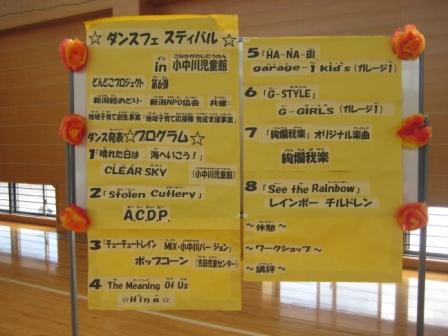 ☆ ダンスフェ スティバル ☆
イン こなかがわじどうかん
in 小中川児童館
どんどこプロジェクト 第6弾
新潟総おどり・ 新潟NPO協会 共催:
地域子育て創生事業 「地域子育て応援隊 育成支援事業」
ダンス発表☆プログラム☆
1「晴れた日は 海へいこう!」
CLEAR SKY (小中川児童館)
2「Stolen Cutlery」
A.C.D.P.
3「チューチュートレイン MIX・小中川バー ジョン」
ポップコーン (吉田児童センター)
4 The Meaning Of Us
☆Hina☆
5「HA-NA-BI
garage-1 kid's (ガレージ1)
6 「G-STYLE」
G-GIRLS (ガレージ1)
7 「絢爛我楽」 オリジナル楽曲
絢爛我楽
8「See the Rainbow」
レインボー チルドレン
~休憩~
~ワークショップ~
~講評~